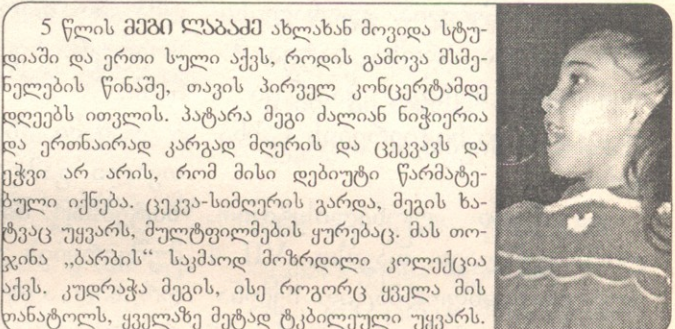 5 წლის მეგი ლაბაძე ახლახან მოვიდა სტუ-
დიაში და ერთი სული აქვს, როდის გამოვა მსმე-
ნელების წინაშე, თავის პირველ კონცერტამდე
დღეებს ითვლის. პატარა მეგი ძალიან ნიჭიერია
და ერთნაირად კარგად მღერის და ცეკვავს და
ეჭვი არ არის, რომ მისი დებიუტი წარმატე-
ბული იქნება. ცეკვა-სიმღერის გარდა, მეგის ხა-
ტვაც უყვარს, მულტფილმების ყურებაც. მას თო-
ჯინა „ბარბის“ საკმაოდ მოზრდილი კოლექცია
აქვს. კუდრაჭა მეგის, ისე როგორც ყველა მის
თანატოლს, ყველაზე მეტად ტკბილეული უყვარს.